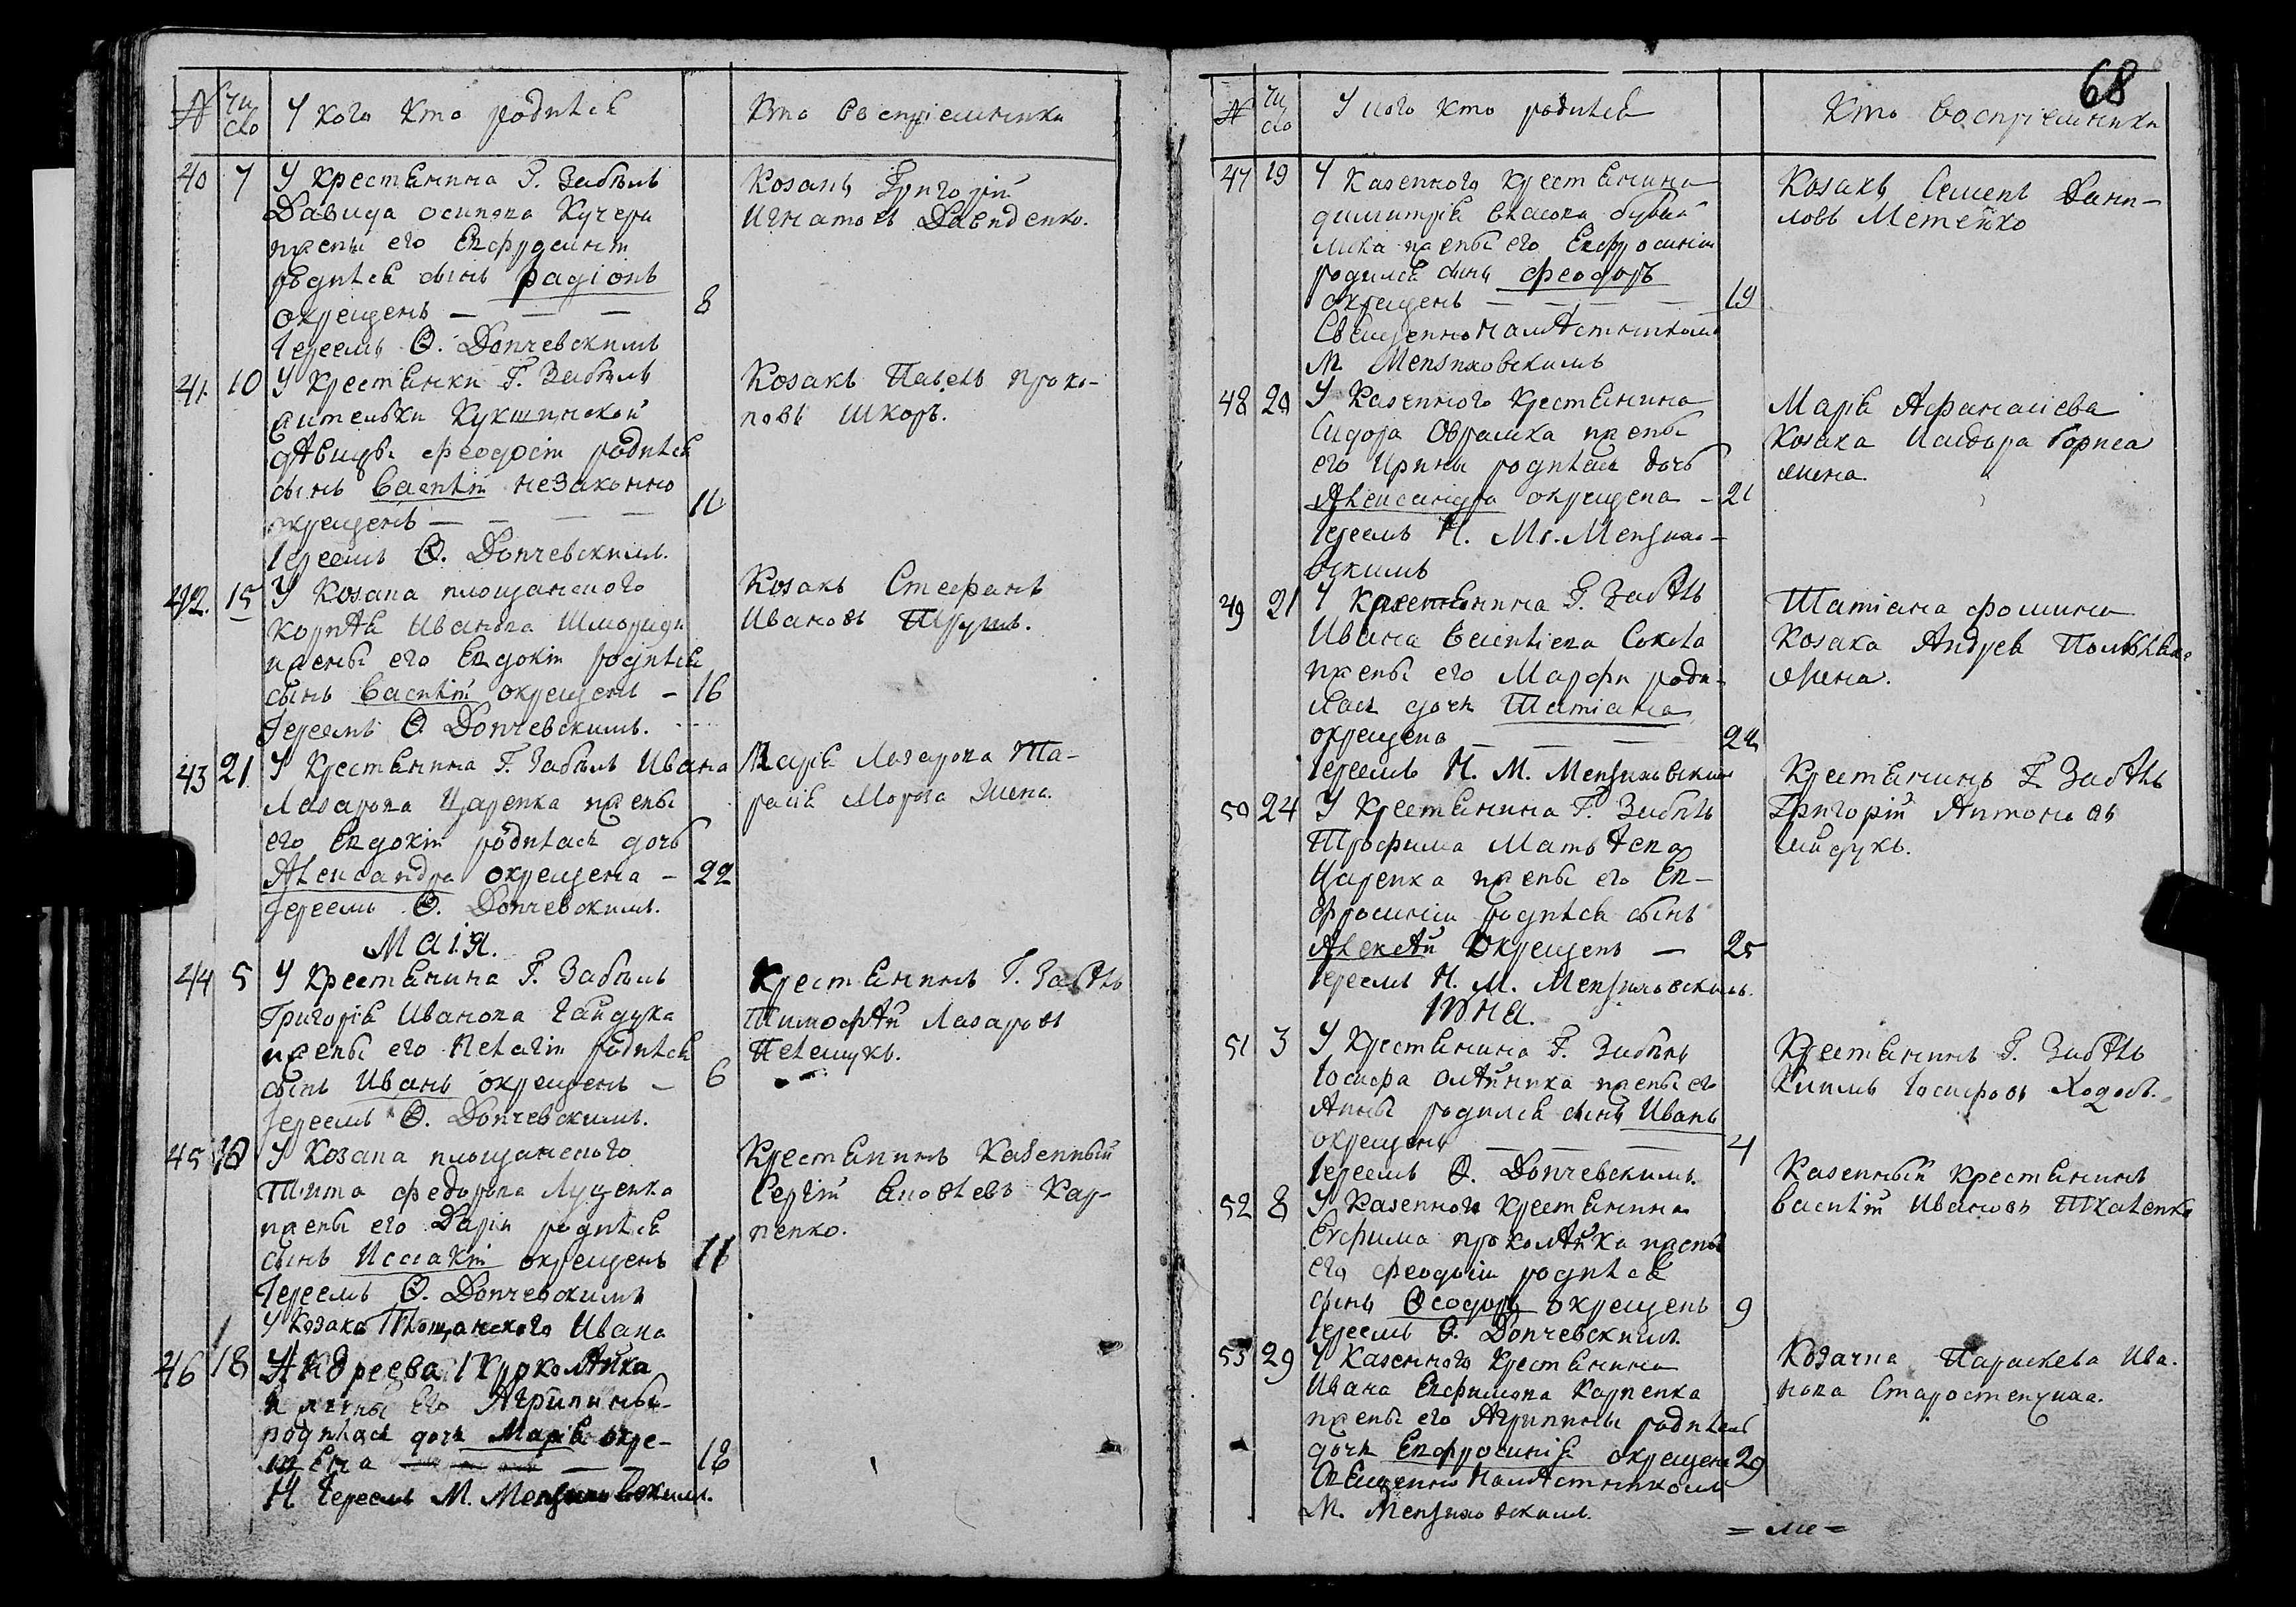 68
№ Чи сло У кого кто родился Кто воспріемники
40 7 У крестянина Г. Забѣлы
Давида осипова Кучери
жены его Евфрусиніи
родился сынъ Радіонъ
окрещенъ — — — 8
Іереемъ Ѳ. Дончевскимъ
Козакъ Григорій
Игнатовъ Давиденко.
41. 10 У крестянки Г. Забѣлы
жительки
дѣвицы феодосіи родился
сынъ Василій незаконно
окрещенъ — — — — 11
Іереемъ Ѳ. Дончевскимъ.
Козакъ Павелъ Проко-
повъ Шкоръ.
42. 15 У Козака площанского
корнѣя Иванова
жены его Евдокіи родился
сынъ Василій окрещенъ — 16
Іереемъ Ѳ. Дончевскимъ.
Козакъ Стефанъ
Ивановъ Трушъ.
43 21 У крестянина Г. Забѣлы Ивана
Лазарова Царенка жены
его Евдокіи родилась дочь
Александра окрещена — 22
Іереемъ Ѳ. Дончевскимъ.
Марія Лазарова Та-
расія Мороза жена.
Маія.
44 5 У Крестянина Г. Забѣлы
Григорія Иванова Гайдука
жены его Пелагіи родился
сынъ Иванъ окрещенъ — 6
Іереемъ Ѳ. Дончевскимъ.
Крестянинъ Г. Забѣлы
Тимофѣй Лазаровъ
45 10 У Козака площанского
Тита федорова Луценка
жены его Даріи родился
сынъ Иссакій окрещенъ 11
Іереемъ Ѳ. Дончевскимъ
Крестянинъ Казенный
Сергій Яковлевъ Кар-
пенко.
У Козака Площанского Ивана
46 18 Андреева
жены Его Агрипины
родилась дочь Марія окре-
щена — — 18
Н Іереемъ М. Мензиховскимъ.
№ Чи сло У кого кто родился Кто воспріемники
47 19 У казенного крестянина
димитрія власова
жены его Евфросиніи
родился сынъ феодоръ
окрещенъ — — — — 19
Священнонамѣстникомъ
М. Мензиховскимъ
Козакъ Семенъ Дани-
ловъ Метейко
48 20 У Казенного Крестянина
Сидора Оврашка жены
его Ирины родилась дочь
Александра окрещена — 21
Іереемъ Н. М. Мензихо-
вскимъ
Марія Афанасіева
Козака Исидора Бориса
жена.
49 21 У Крестянина Г. Забѣлы
Ивана Василіева Сокола
жены его Марфи роди-
лась дочь Татіана
окрещена — — — 22
Іереемъ Н. М. Мензиховскимъ
Татіана фомина
Козака Андрея
жена.
50 24 У Крестянина Г. Забѣлы
Трофима Матвѣева
Царенка жены его Ев-
фросиніи родился сынъ
Алексѣй окрещенъ — 25
Іереемъ Н. М. Мензиховскимъ.
Крестянинъ Г. Забѣлы
Григорій Антоновъ
Гайдукъ.
Іюна.
51 3 У Крестянина Г. Забѣлы
Іосифа олѣйника жены его
Анны родился сынъ Иванъ
окрещенъ — — 4
Іереемъ Ѳ. Дончевскимъ.
Крестянинъ Г. Забѣлы
Киимъ Іосифовъ Ходось.
52 8 У Казенного Крестянина
Евфима жены
его феодосіи родился
сынъ Ѳеодоръ окрещенъ 9
Іереемъ Ѳ. Дончевскимъ.
Казенный Крестянинъ
Василій Ивановъ Ткаленко
53 29 У Казенного Крестянина
Ивана Евфимова Карпенка
жены его Агрипины родилась
дочь Евфросинія окрещена 29
Священнонамѣстникомъ
М. Мензиховскимъ.
Козачка Параскева Ива-
нова Старостенкина.